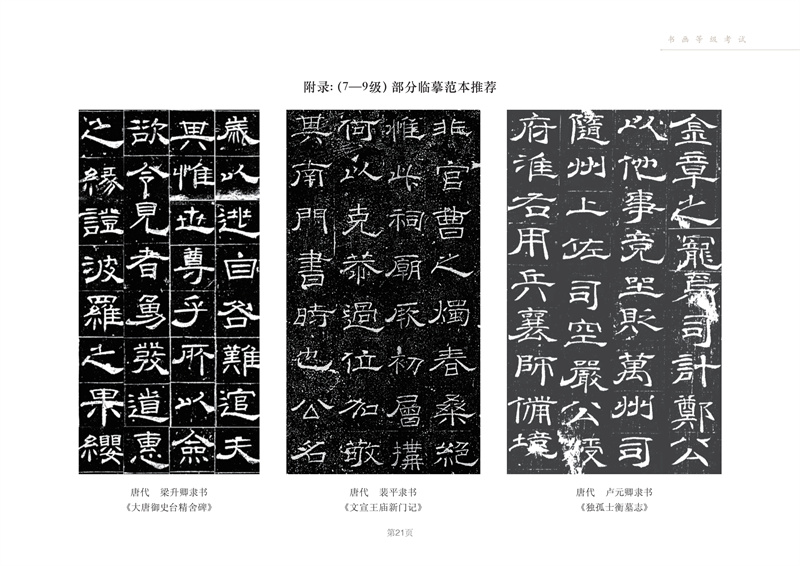 书画等级考试
附录：（7—9级）部分临摹范本推荐
歲以逃自咎難逭夫
其惟世尊乎所以僉
欲令見者勇發道惠
之緣證波羅之果纓
非官曹之燭春桑絕
惟此祠廟厥初層構
何以克恭過位加敬
其南門書時也公名
金章之寵焉司計鄭公
以他事竟坐貶萬州司
隨州上佐司空嚴公綬
府淮右用兵襄師備境
唐代 梁升卿隶书
《大唐御史台精舍碑》
唐代 裴平隶书
《文宣王庙新门记》
唐代 卢元卿隶书
《独孤士衡墓志》
第21页